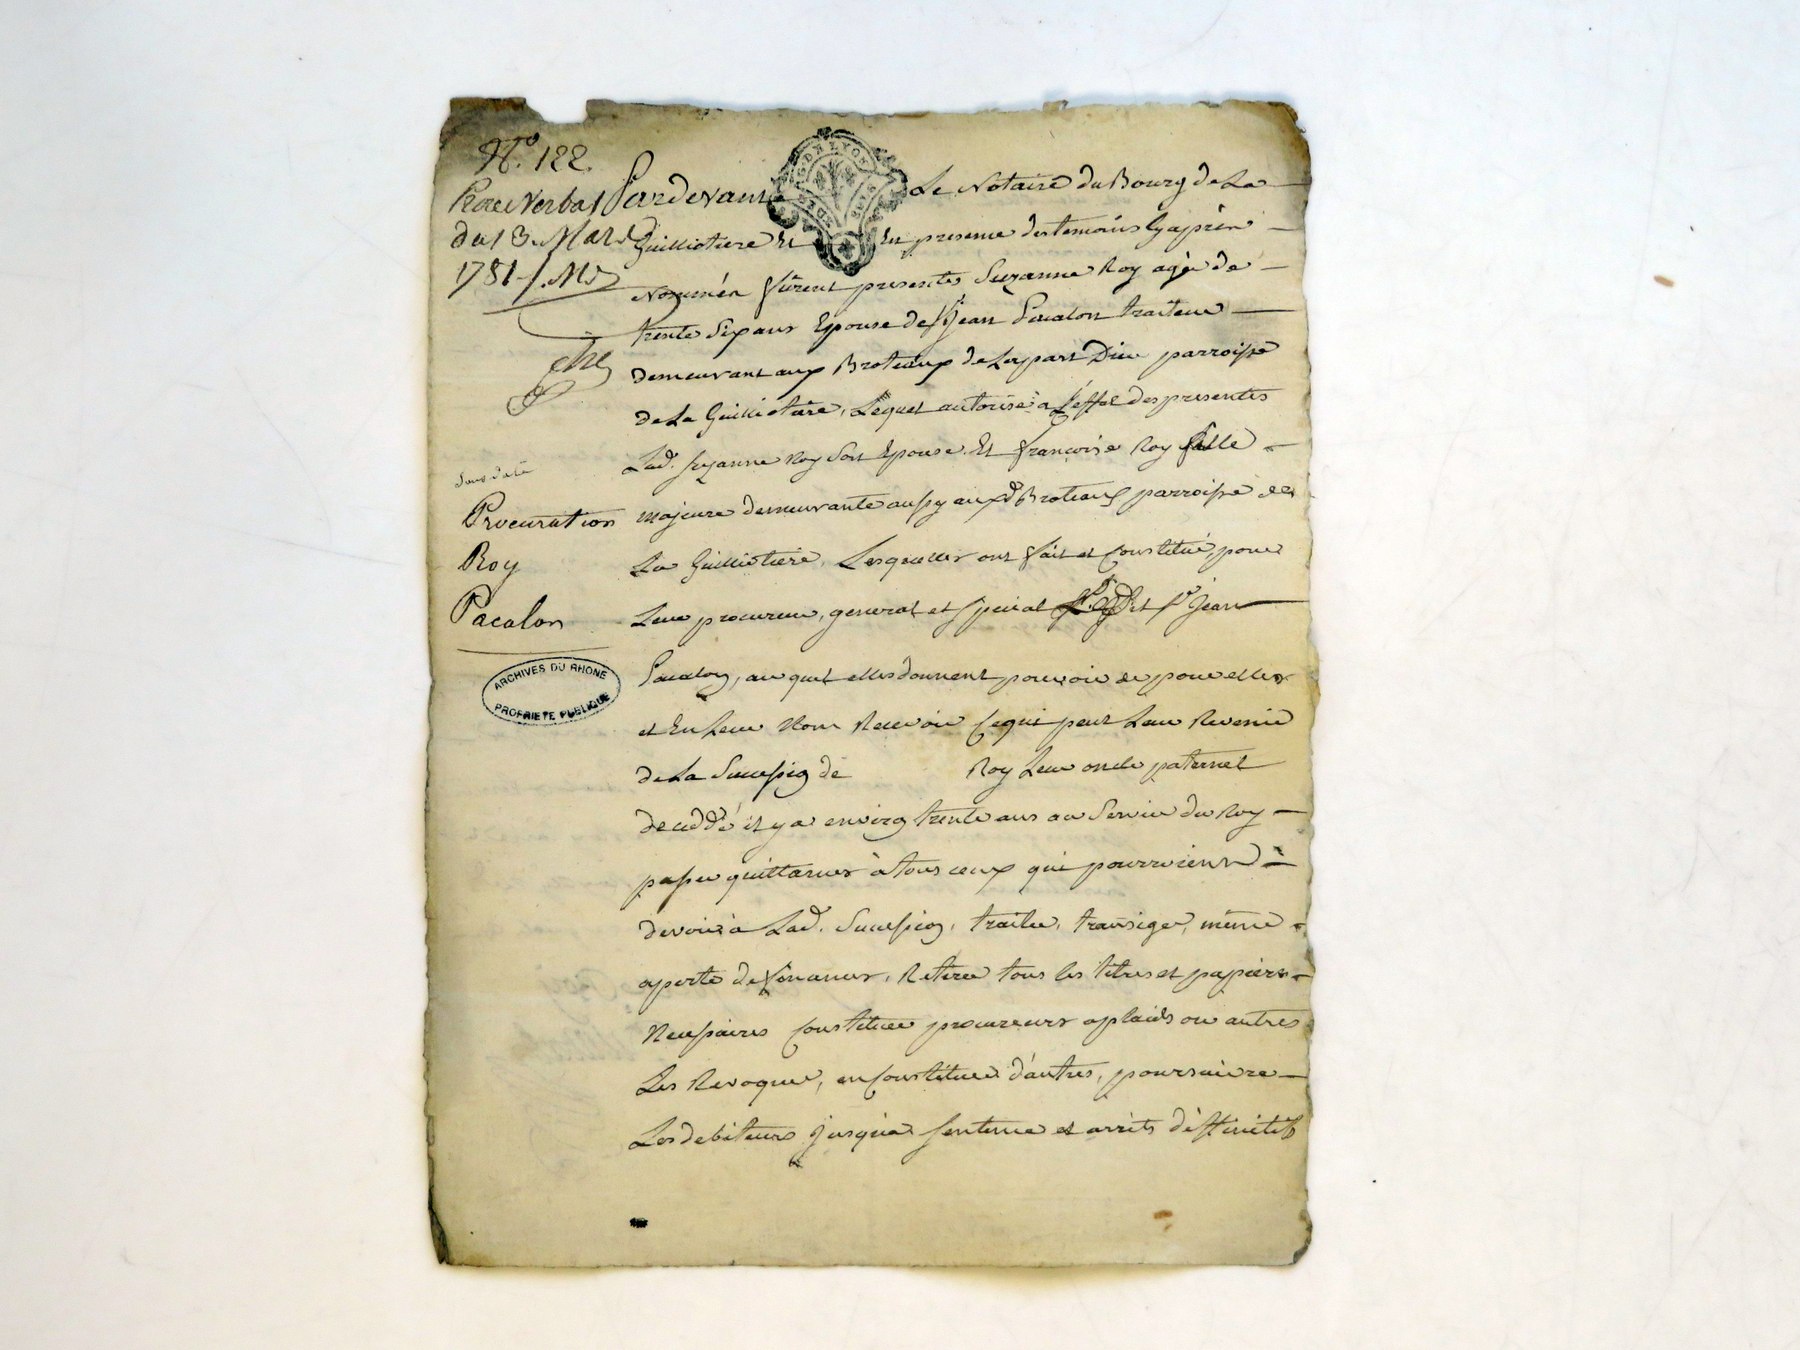 N.º 122.
Procès Verbal
du 13. Mars
1781
Sans date
Procuration
Roy
Pacalon
ARCHIVES DU RHONE
PROPRIETE PUBLIQUE
GEN. DE LYON
Pardevant Le Notaire du Bourg de La
Guillotiere Et En presence des temoins Cy aprèn
Nommén furent presentes Suzanne Roy agée de
trente Six ans Epouse de Sr. Jean Pacalon traiteur
demeurant aux Broteaux de La part Dieu parroisse
de La Guillotiere, Lequel autorise à L'effet des presentes
Lad. Suzanne Roy Son Epouse. Et françoise Roy fille
majeure demeurante aussy auxd. Broteaux parroisse de
La Guillotiere, Lesquelles ont fait et Constitué, pour
Leur procureur, general et Special led. Sr. Jean
Pacalon, auquel elles donnent pouvoir de pour elles
et En Leur Nom Recevoir Ce qui peut Leur Revenir
de La Succession de Roy Leur oncle paternel
decedé il y a environ trente ans au Service du Roy
passer quittances à tous ceux qui pourroient
devoir à Lad. Succession, traiter, transiger, même
a perte de finances, Retirer tous les titres et papiers
Necessaires Constituer procureurs a plaids ou autres
Les Revoquer, en Constituer d'autres, poursuivre
Les debiteurs Jusqu'a Sentence et arrets déffinitifs